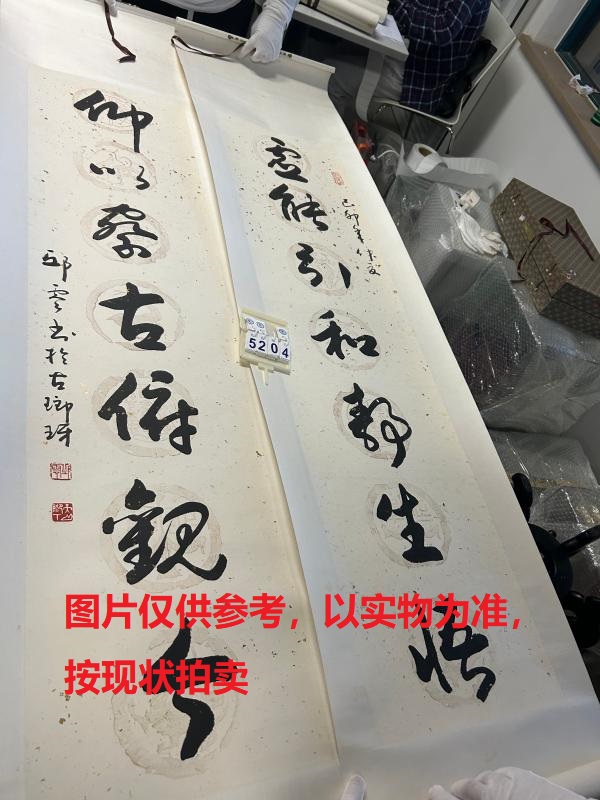 己卯年仲夏
虚能引和靜生悟
仰以察古俯觀今
邱雲书於古瑯玡
5204
图片仅供参考，以实物为准，
按现状拍卖